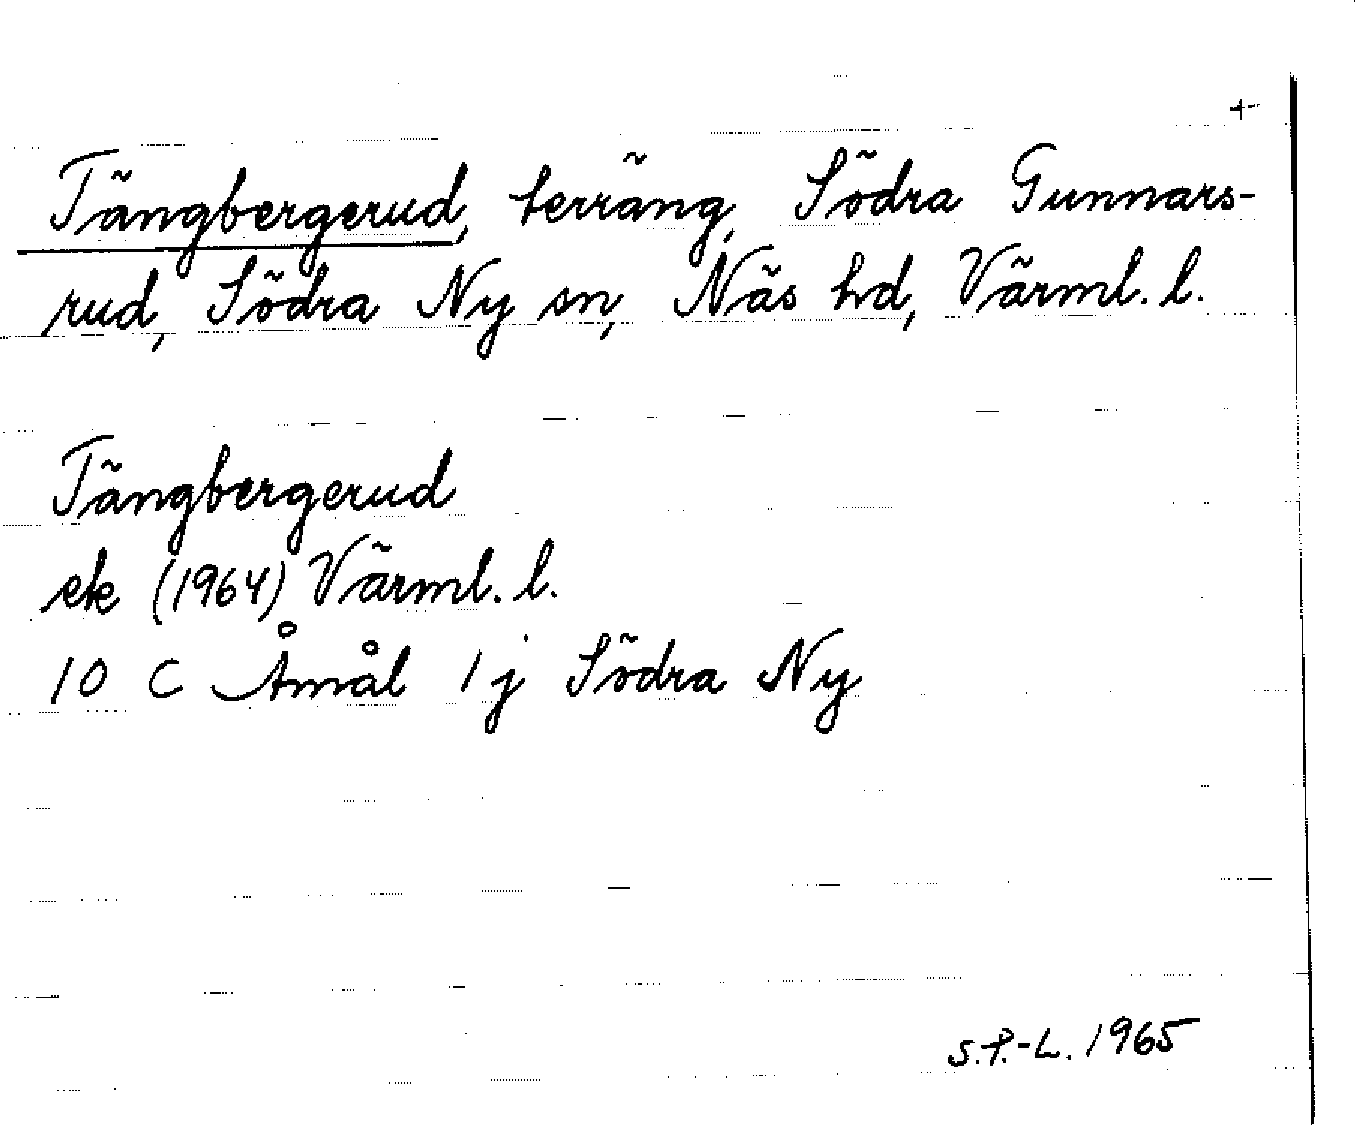 +
Tängbergerud, terräng, Södra Gunnars-
rud, Södra Ny sn, Näs hd, Värml. l.
Tängbergerud
ek (1964) Värml. l.
10 C Åmål 1 j Södra Ny
S.P.-L. 1965